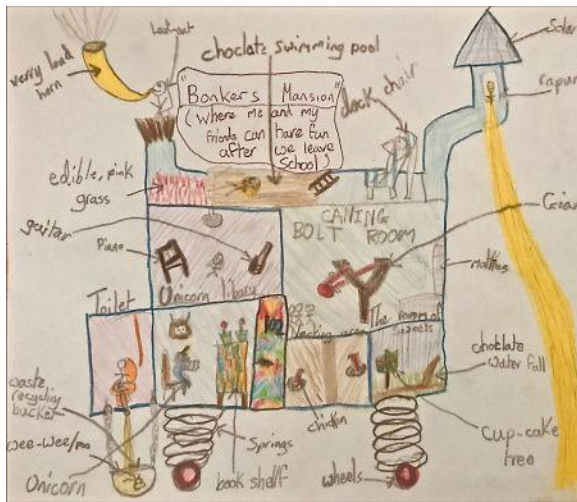 Look-out
verry loud
horn
choclate swimming pool
Solar
rapun
"Bonkers Mansion"
(where me and my
friends can have fun
after we leave
school)
deck chair
edible, pink
grass
guitar
Piano
CANING
BOLT ROOM
Gian
Unicorn libary
Toilet
Nesting area
The room of
sweets
choclate
water fall
waste
recycling
bucket
wee-wee/poo
Unicorn
Springs
book shelf
chicken
wheels
cup-cake
tree